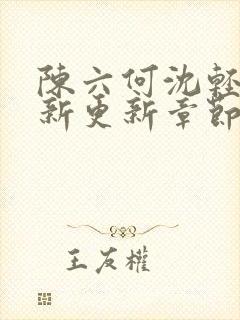 陳六何沈輕
新更新章節
王友權